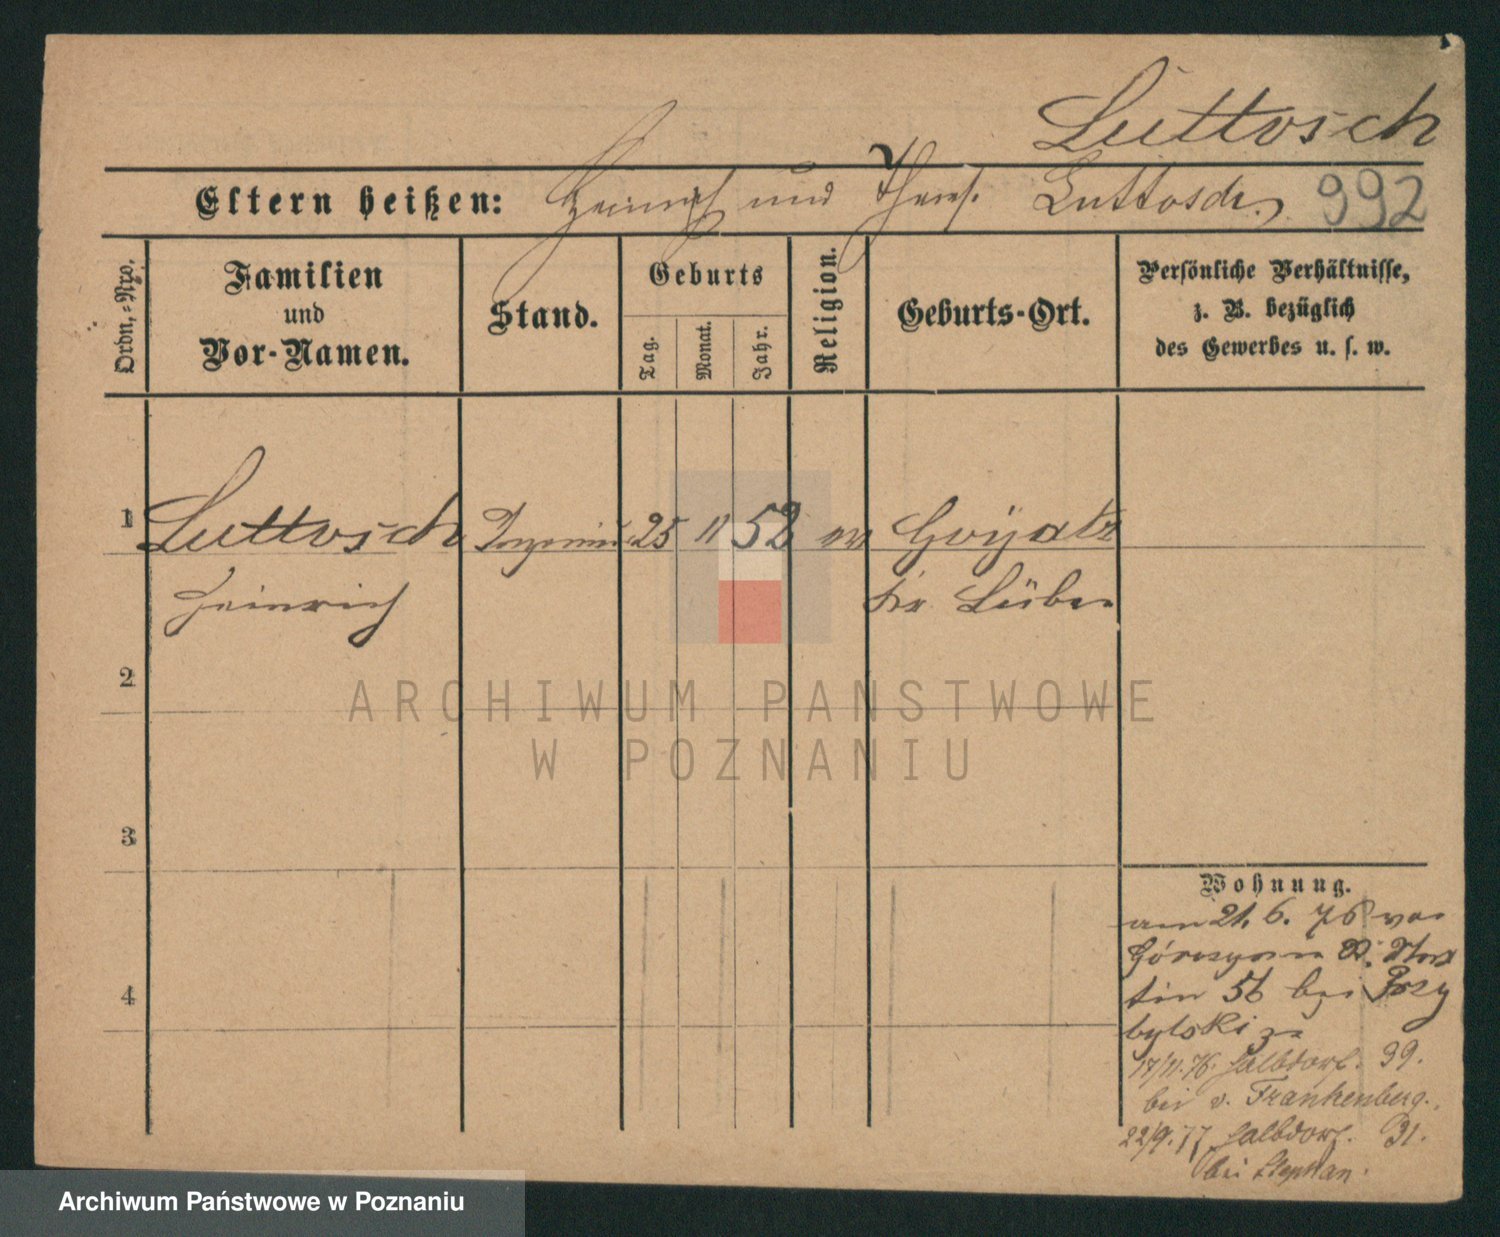 Luttosch
Eltern heißen: Heinrich und Theres. Luttosch. 992
Ordn.-Nro.
Familien
und
Vor-Namen.
Stand.
Geburts
Tag.
Monat.
Jahr.
Religion.
Geburts-Ort.
Persönliche Verhältnisse,
z. B. bezüglich
des Gewerbes u. s. w.
1 Luttosch 25 11 52
Heinrich
Kr. Lüben
2
3
4
Wohnung.
am 21. 6. 76 von
tin 56 bei Przy
bylski
17/11.76. Halbdorf. 39.
bei v. Frankenberg.
22/9.77 Halbdorf. 31.
bei Stephan.
ARCHIWUM PANSTWOWE
W POZNANIU
Archiwum Państwowe w Poznaniu